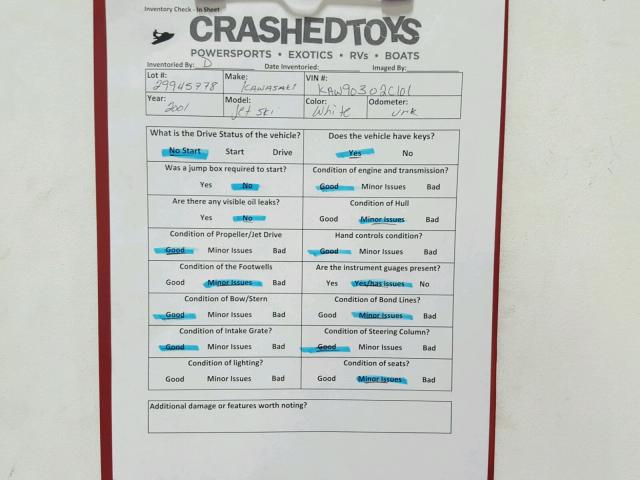 Inventory Check - In Sheet
CRASHEDTOYS
POWERSPORTS • EXOTICS • RVs • BOATS
Inventoried By: D Date Inventoried: Imaged By:
Lot #: Make: VIN #:
29945778 KAWASAKI KAW90302C101
Year: Model: Color: Odometer:
2001 Jet Ski White Unk
What is the Drive Status of the vehicle? Does the vehicle have keys?
No Start Start Drive Yes No
Was a jump box required to start? Condition of engine and transmission?
Yes No Good Minor Issues Bad
Are there any visible oil leaks? Condition of Hull
Yes No Good Minor Issues Bad
Condition of Propeller/Jet Drive Hand controls condition?
Good Minor Issues Bad Good Minor Issues Bad
Condition of the Footwells Are the instrument guages present?
Good Minor Issues Bad Yes Yes/has issues No
Condition of Bow/Stern Condition of Bond Lines?
Good Minor Issues Bad Good Minor Issues Bad
Condition of Intake Grate? Condition of Steering Column?
Good Minor Issues Bad Good Minor Issues Bad
Condition of lighting? Condition of seats?
Good Minor Issues Bad Good Minor Issues Bad
Additional damage or features worth noting?